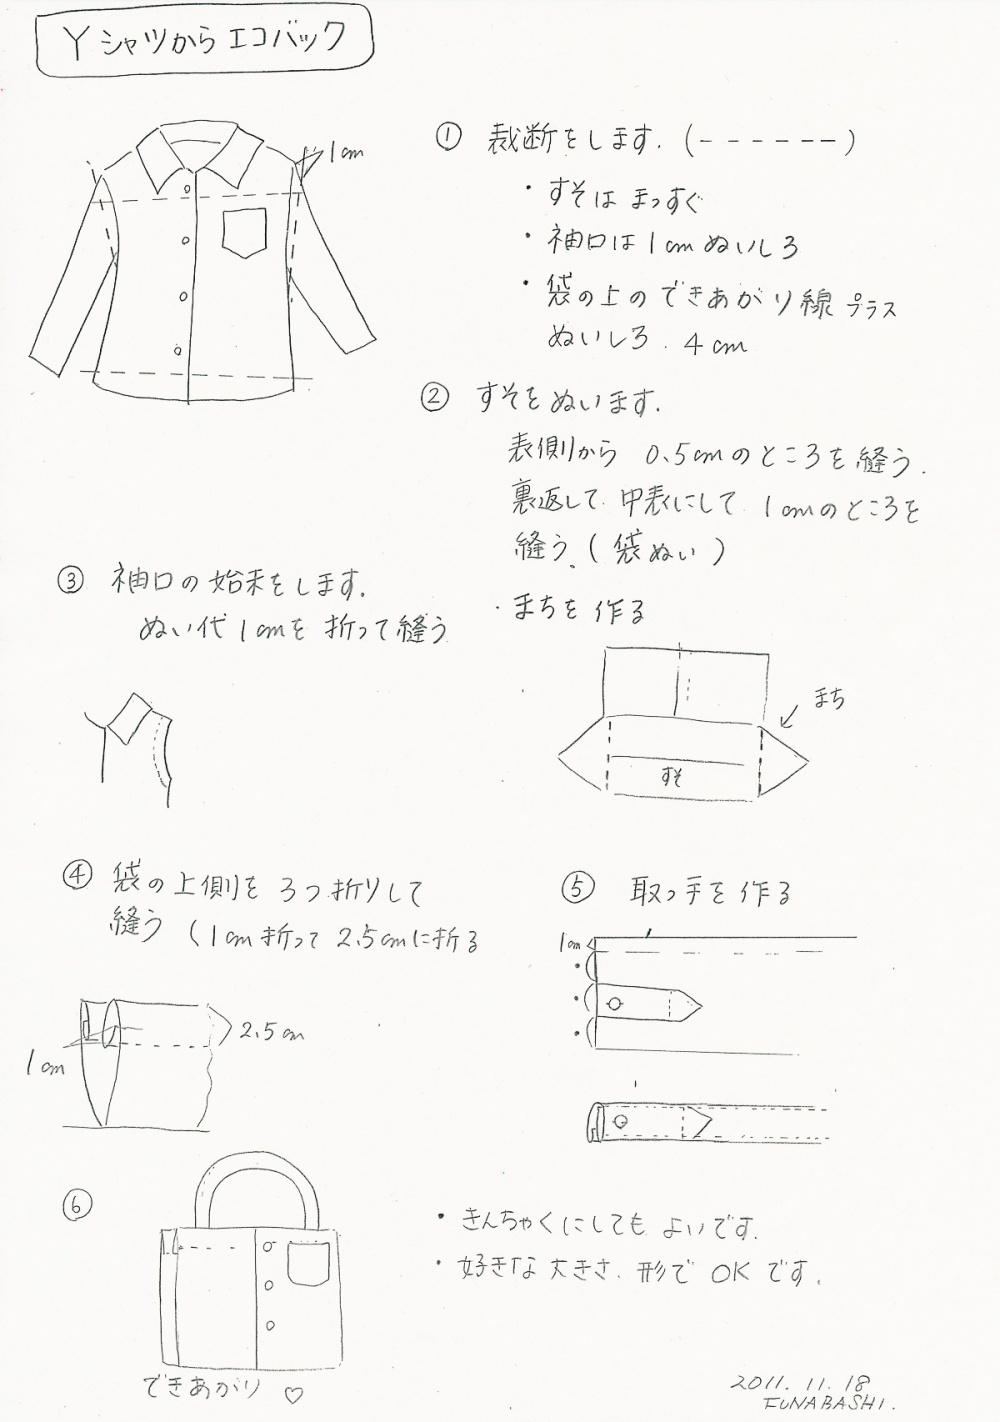 Yシャツからエコバック
1cm
① 裁断をします.(------)
・すそは まっすぐ
・袖口は 1cm ぬいしろ
・袋の上の できあがり線 プラス
ぬいしろ. 4cm
② すそを ぬいます.
表側から 0.5cmのところを縫う.
裏返して 中表にして 1cmのところを
縫う.(袋ぬい)
・まちを 作る
まち
すそ
③ 袖口の始末をします.
ぬい代 1cmを 折って縫う
④ 袋の上側を 3つ折りして
縫う (1cm折って 2.5cmに折る
2.5cm
1cm
⑤ 取っ手を 作る
1cm
⑥
できあがり ♡
・きんちゃくにしても よいです.
・好きな 大きさ. 形で OKです.
2011. 11. 18
FUNABASHI.